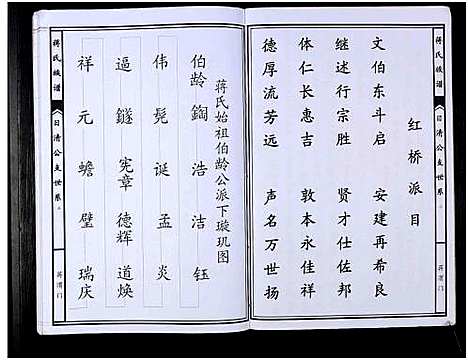 红桥派目
文伯东斗启 安建再希良
继述行宗胜 贤才仕佐邦
体仁长惠吉 敦本永佳祥
德厚流芳远 声名万世扬
蒋氏族谱
日清公支世系
蒋渭门
蒋氏始祖伯龄公派下璇玑图
伯龄 鋾 浩 洁 钰
伟 髡 诞 孟 炎
逼 鐩 宪章 德辉 道焕
祥 元 蟾 璧 瑞庆
蒋氏族谱
日清公支世系
蒋渭门